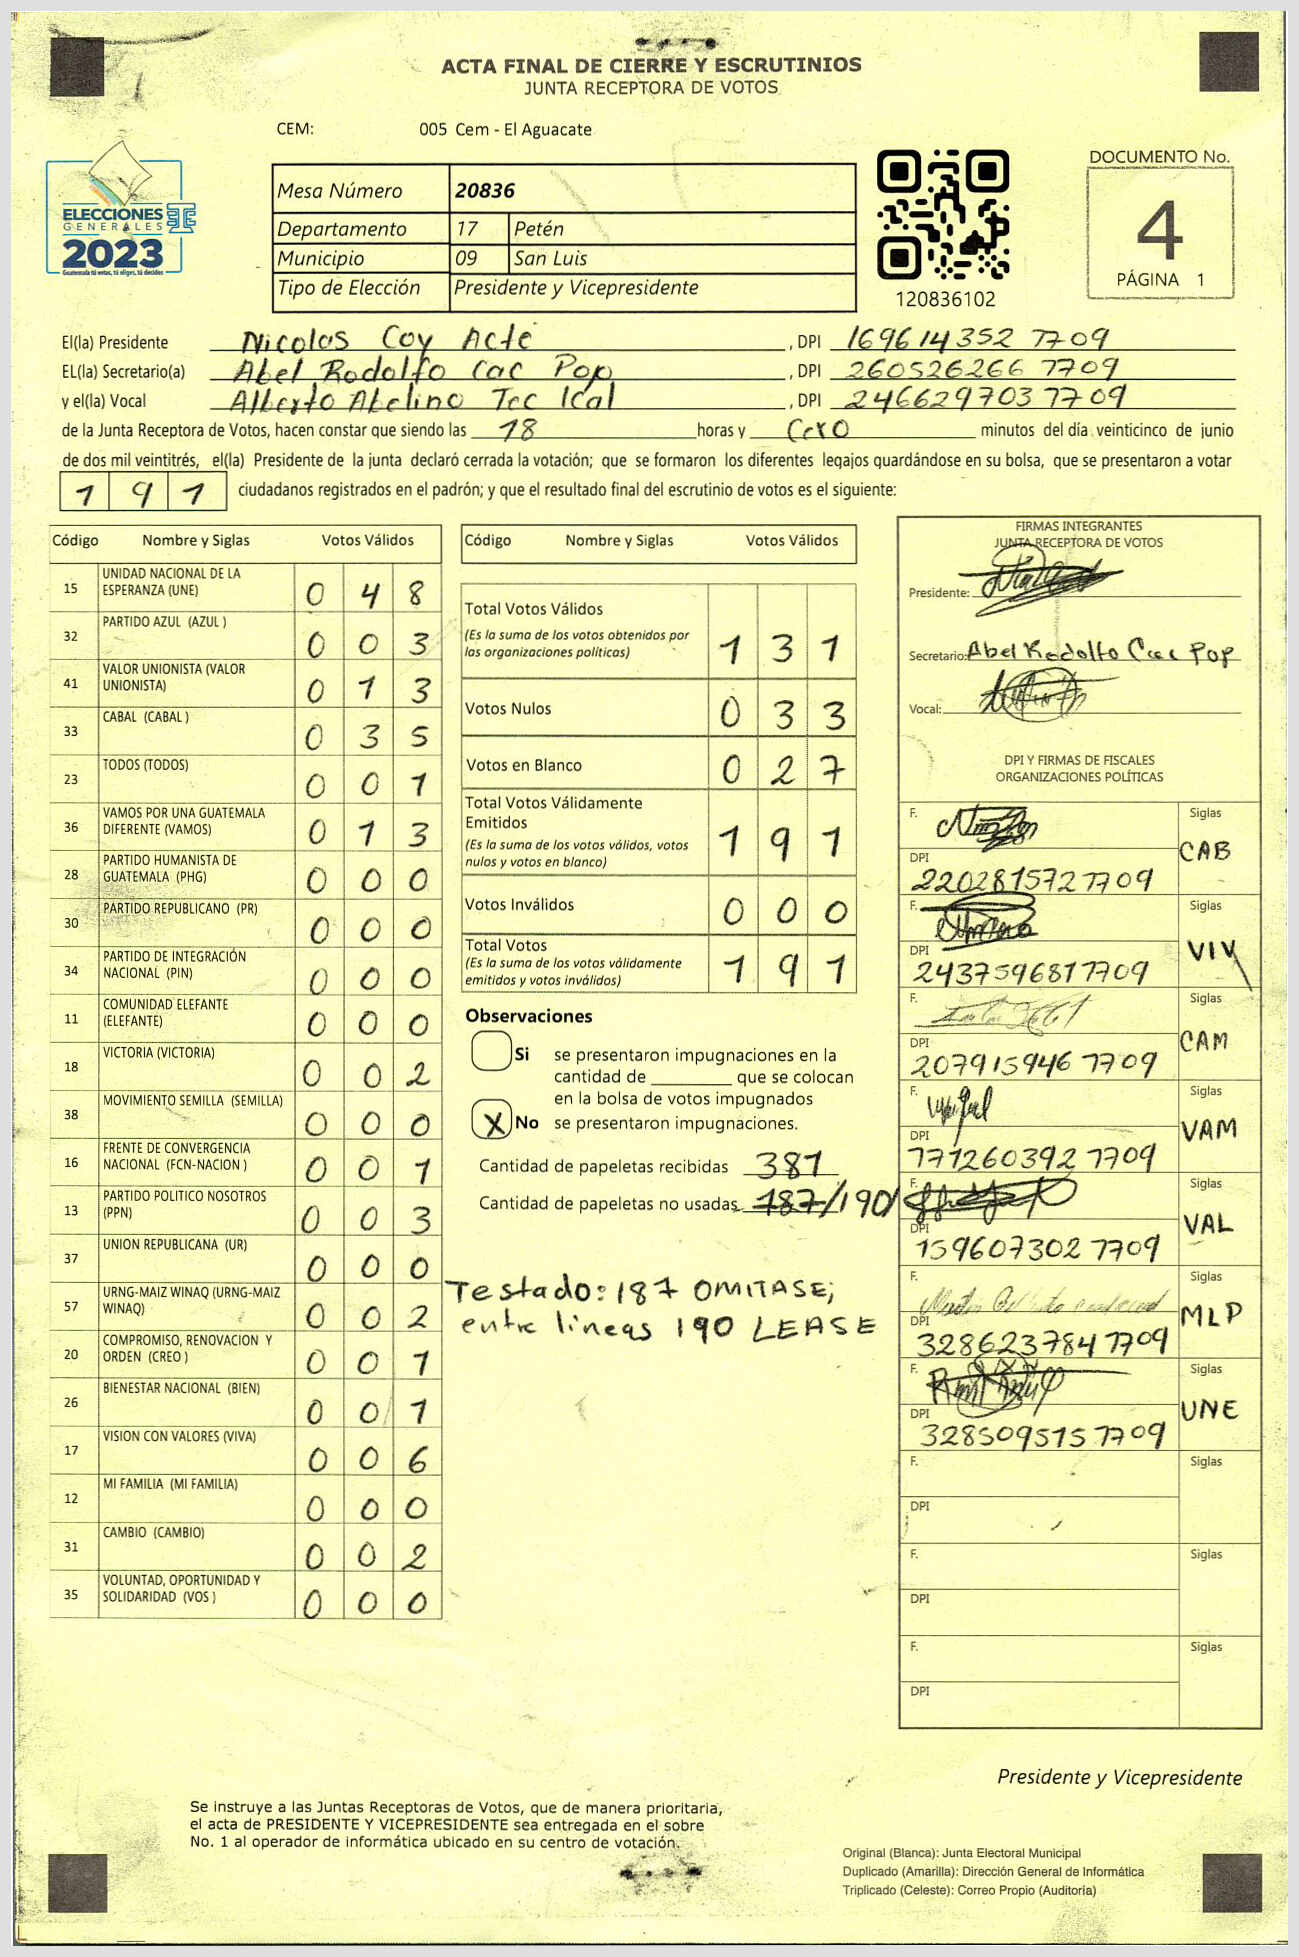 ACTA FINAL DE CIERRE Y ESCRUTINIOS
JUNTA RECEPTORA DE VOTOS
CEM: 005 Cem - El Aguacate
ELECCIONES
GENERALES
2023
Guatemala tú votas, tú eliges, tú decides
Mesa Número 20836
Departamento 17 Petén
Municipio 09 San Luis
Tipo de Elección Presidente y Vicepresidente
120836102
DOCUMENTO No.
4
PÁGINA 1
El(la) Presidente Nicolas Coy Acté , DPI 169614352 7709
EL(la) Secretario(a) Abel Rodolfo Cac Pop , DPI 260526266 7709
y el(la) Vocal Alberto Abelino Tec Ical , DPI 246629703 7709
de la Junta Receptora de Votos, hacen constar que siendo las 18 horas y Cero minutos del día veinticinco de junio
de dos mil veintitrés, el(la) Presidente de la junta declaró cerrada la votación; que se formaron los diferentes legajos guardándose en su bolsa, que se presentaron a votar
1 9 1 ciudadanos registrados en el padrón; y que el resultado final del escrutinio de votos es el siguiente:
Código Nombre y Siglas Votos Válidos
15 UNIDAD NACIONAL DE LA ESPERANZA (UNE) 0 4 8
32 PARTIDO AZUL (AZUL ) 0 0 3
41 VALOR UNIONISTA (VALOR UNIONISTA) 0 1 3
33 CABAL (CABAL ) 0 3 5
23 TODOS (TODOS) 0 0 1
36 VAMOS POR UNA GUATEMALA DIFERENTE (VAMOS) 0 1 3
28 PARTIDO HUMANISTA DE GUATEMALA (PHG) 0 0 0
30 PARTIDO REPUBLICANO (PR) 0 0 0
34 PARTIDO DE INTEGRACIÓN NACIONAL (PIN) 0 0 0
11 COMUNIDAD ELEFANTE (ELEFANTE) 0 0 0
18 VICTORIA (VICTORIA) 0 0 2
38 MOVIMIENTO SEMILLA (SEMILLA) 0 0 0
16 FRENTE DE CONVERGENCIA NACIONAL (FCN-NACION ) 0 0 1
13 PARTIDO POLITICO NOSOTROS (PPN) 0 0 3
37 UNION REPUBLICANA (UR) 0 0 0
57 URNG-MAIZ WINAQ (URNG-MAIZ WINAQ) 0 0 2
20 COMPROMISO, RENOVACION Y ORDEN (CREO ) 0 0 1
26 BIENESTAR NACIONAL (BIEN) 0 0 1
17 VISION CON VALORES (VIVA) 0 0 6
12 MI FAMILIA (MI FAMILIA) 0 0 0
31 CAMBIO (CAMBIO) 0 0 2
35 VOLUNTAD, OPORTUNIDAD Y SOLIDARIDAD (VOS ) 0 0 0
Código Nombre y Siglas Votos Válidos
Total Votos Válidos
(Es la suma de los votos obtenidos por
las organizaciones políticas) 1 3 1
Votos Nulos 0 3 3
Votos en Blanco 0 2 7
Total Votos Válidamente
Emitidos
(Es la suma de los votos válidos, votos
nulos y votos en blanco) 1 9 1
Votos Inválidos 0 0 0
Total Votos
(Es la suma de los votos válidamente
emitidos y votos inválidos) 1 9 1
Observaciones
Si se presentaron impugnaciones en la
cantidad de ________ que se colocan
en la bolsa de votos impugnados
X No se presentaron impugnaciones.
Cantidad de papeletas recibidas 381
Cantidad de papeletas no usadas 187/190/
Testado: 187 OMITASE;
entre lineas 190 LEASE
FIRMAS INTEGRANTES
JUNTA RECEPTORA DE VOTOS
Presidente:
Secretario: Abel Rodolfo Cac Pop
Vocal:
DPI Y FIRMAS DE FISCALES
ORGANIZACIONES POLÍTICAS
F. Siglas
CAB
DPI
220281572 7709
F. Siglas
VIV
DPI
243759681 7709
F. Siglas
CAM
DPI
207915946 7709
F. Siglas
VAM
DPI
171260392 7709
F. Siglas
VAL
DPI
159607302 7709
F. Siglas
MLP
DPI
328623784 7709
F. Siglas
UNE
DPI
328509515 7709
F. Siglas
DPI
F. Siglas
DPI
F. Siglas
DPI
Presidente y Vicepresidente
Se instruye a las Juntas Receptoras de Votos, que de manera prioritaria,
el acta de PRESIDENTE Y VICEPRESIDENTE sea entregada en el sobre
No. 1 al operador de informática ubicado en su centro de votación.
Original (Blanca): Junta Electoral Municipal
Duplicado (Amarilla): Dirección General de Informática
Triplicado (Celeste): Correo Propio (Auditoria)